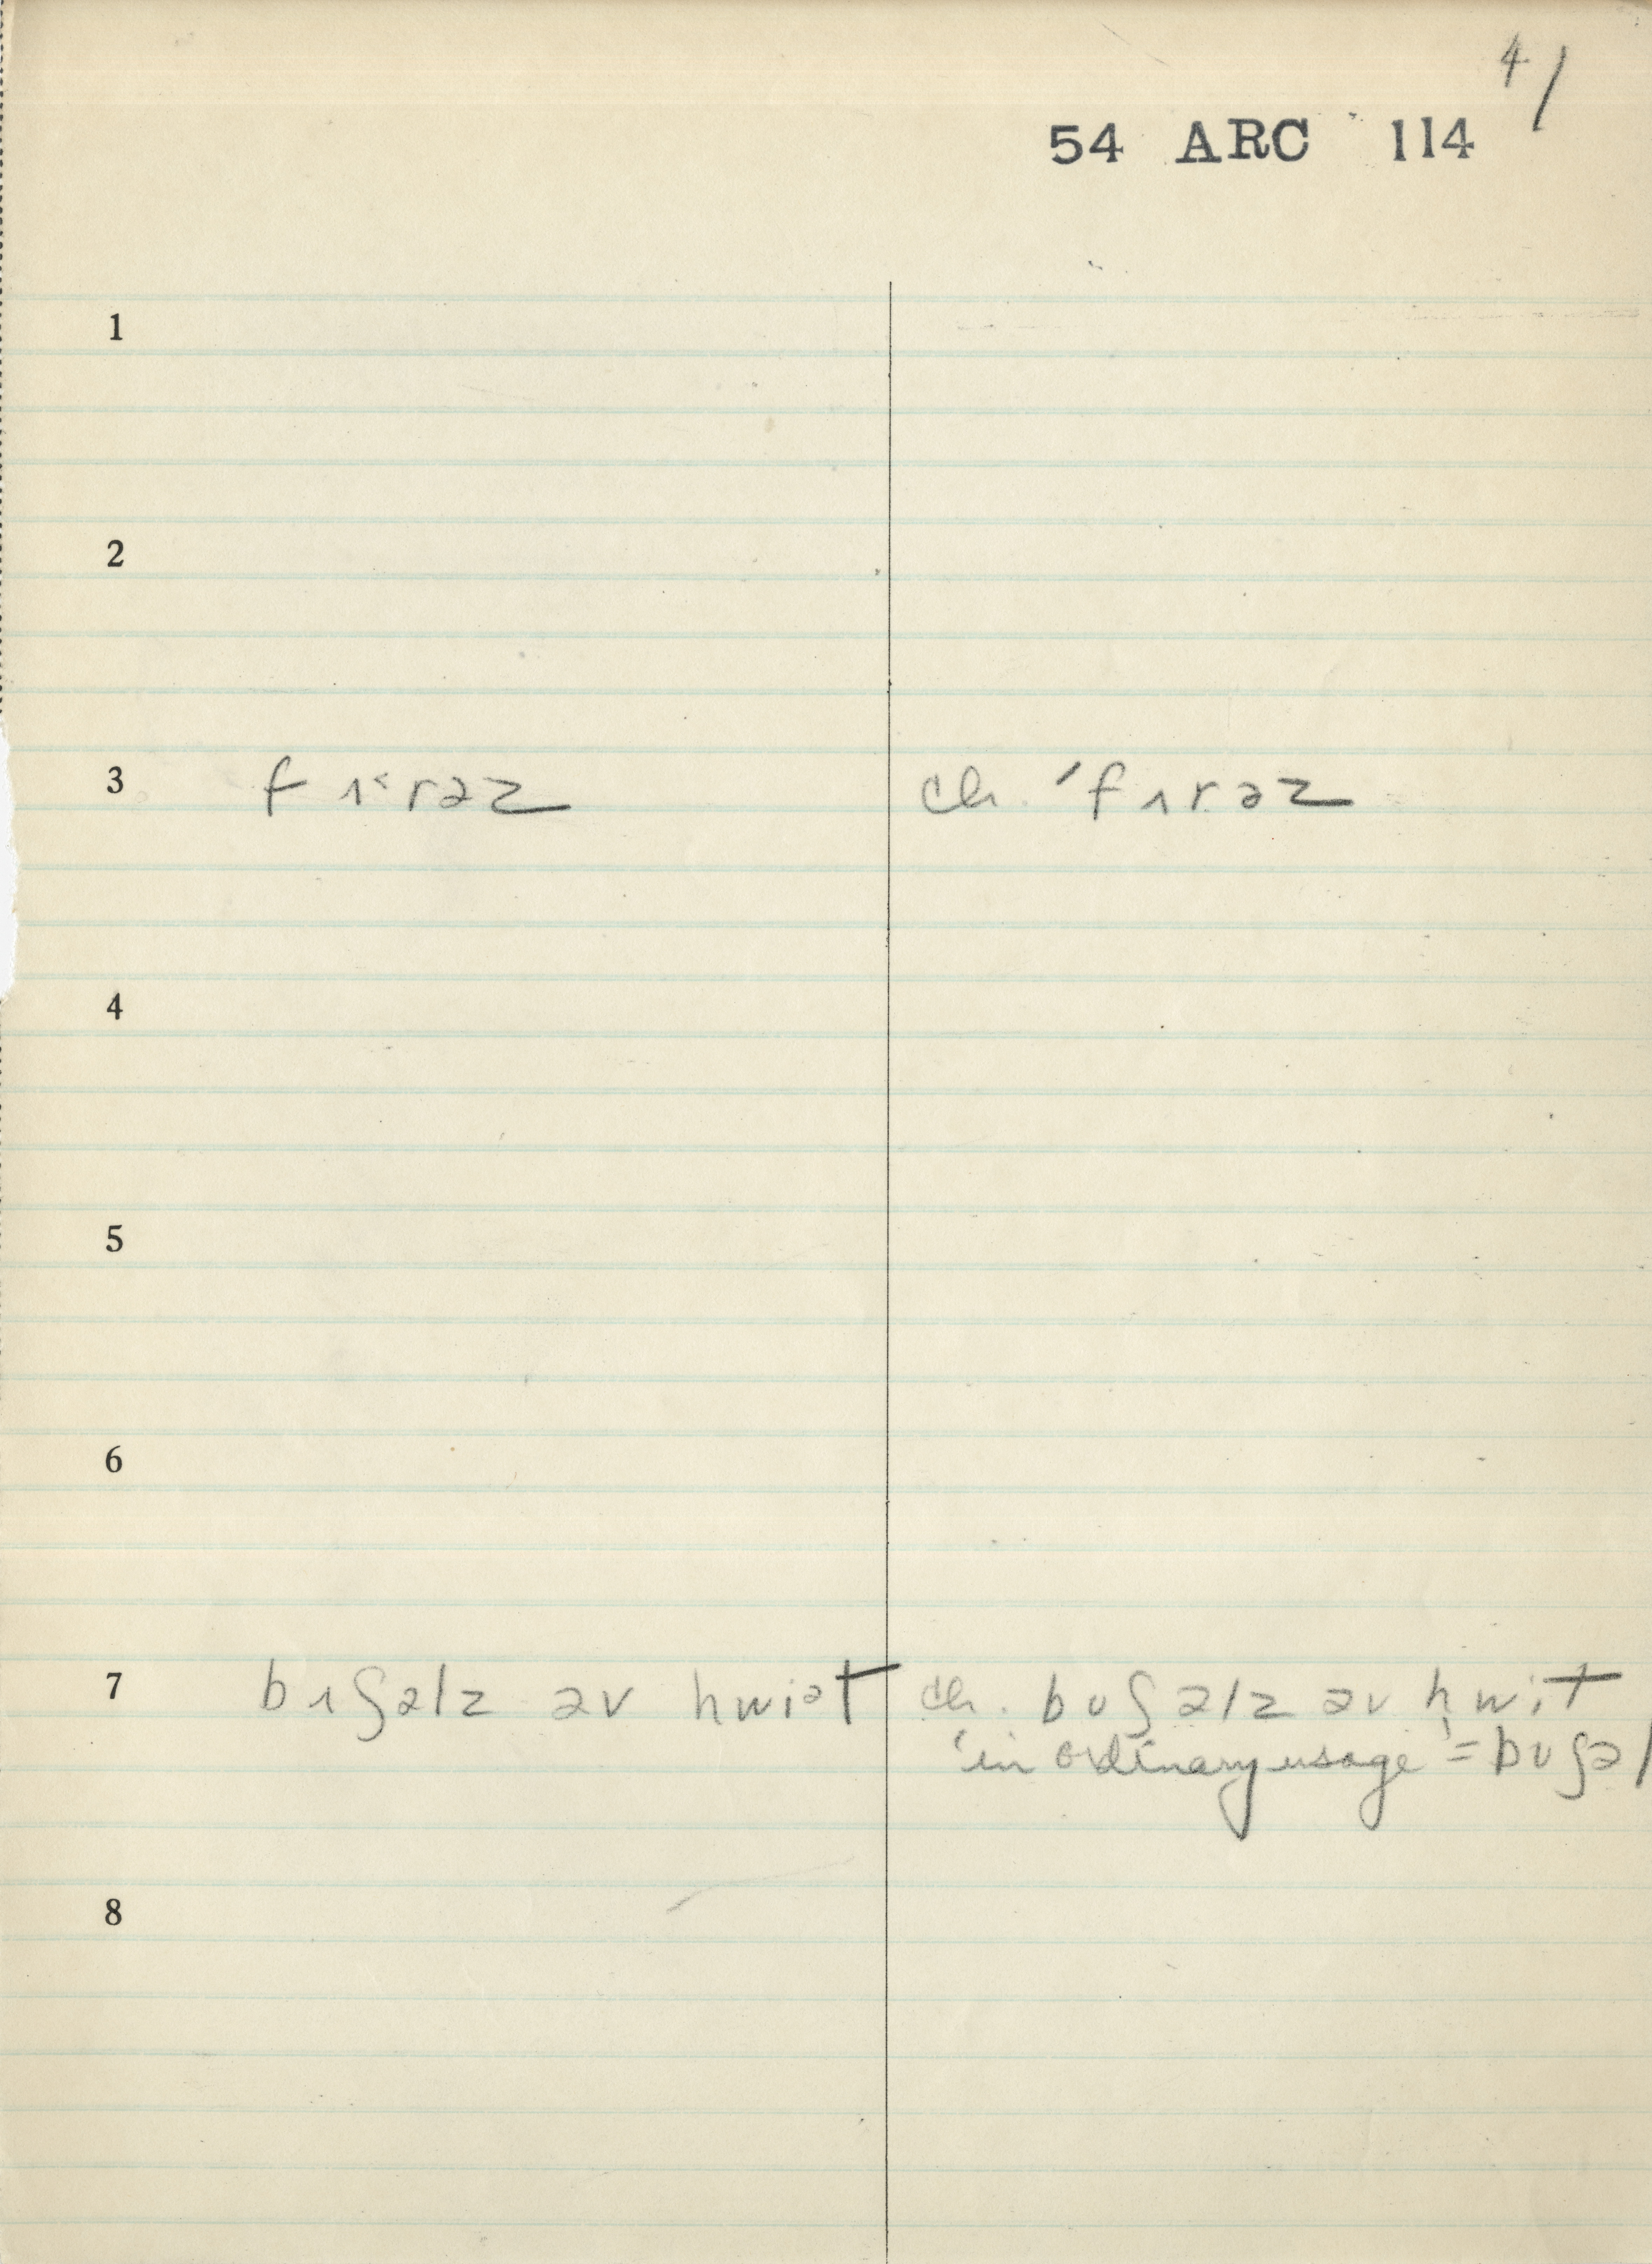 4/
54 ARC 114
1
2
3 fɪ˂rəz ch. ˊfɪrəz
4
5
6
7 bɪʃəlz əv hwiət ch. bʊʃəlz əv hwit
'in ordinary usage' = bʊʃəl
8